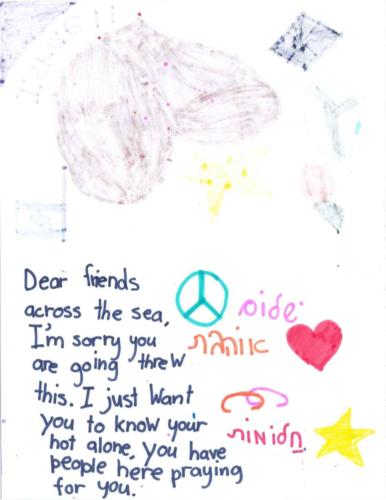 Dear friends
across the sea,
שלום
I'm sorry you
אוהבת
are going threw
this. I just want
you to know your
חלומות
not alone, you have
people here praying
for you.